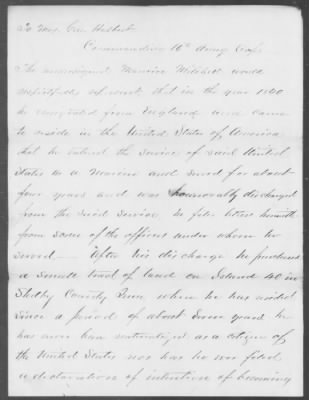 To Maj. Gen. Hurlbut
Commanding 16th Army Corps
The undersigned Maurice Mitchell would
respectfully represent that in the year 1840
he emigrated from England and came
to reside in the United States of America
that he entered the service of said United
States as a Marine and served for about
four years and was honorably discharged
from the said service. he files letters herewith
from some of the officers under whom he
served — After his discharge he purchased
a small tract of land on Island 40 in
Shelby County Tenn. where he has resided
since a period of about years he
has never been naturalized as a citizen of
the United States nor has he ever filed
a declaration of intention of becoming